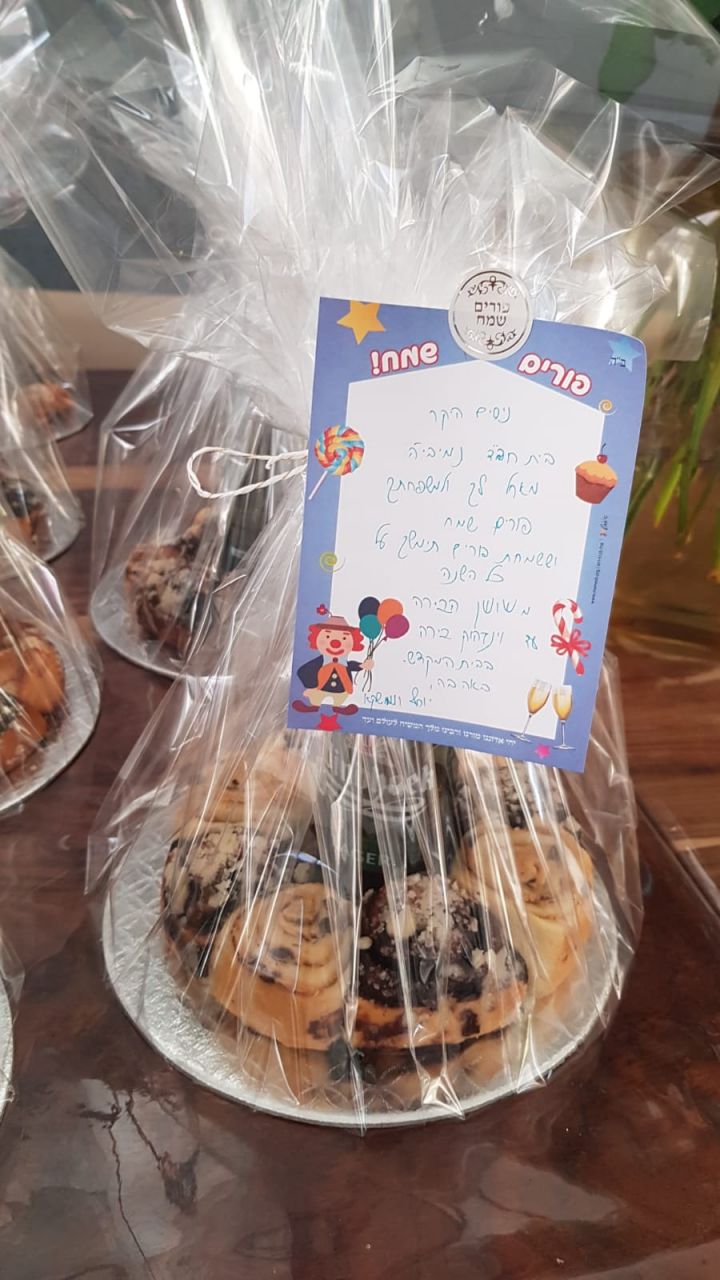 פורים
שמח
ב"ה
פורים שמח!
ניסים היקר
בית חב"ד נמיביה
מאחל לך ולמשפחתך
פורים שמח
וששמחת פורים תימשך על
כל השנה
משושן הבירה
עד וינדהוק בירה
בבית המקדש.
באהבה,
יחי אדוננו מורנו ורבינו מלך המשיח לעולם ועד